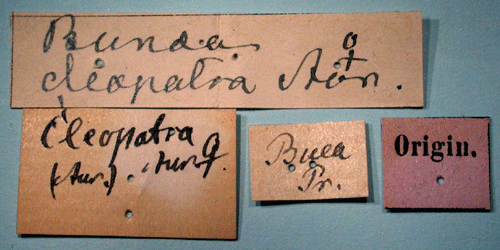 Bunaea ♀
cleopatra Aur.
Cleopatra ♀
(Aur.) Aur.
Buea
Pr.
Origin.